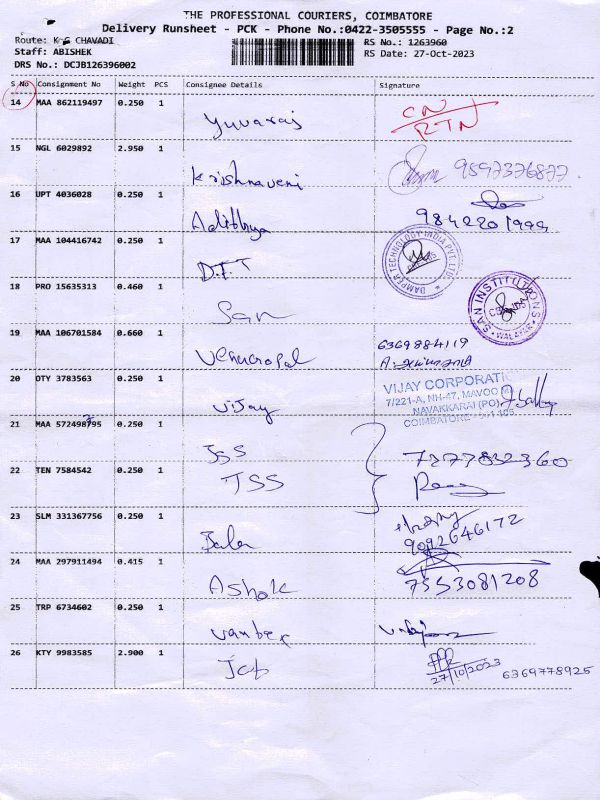 THE PROFESSIONAL COURIERS, COIMBATORE
Delivery Runsheet - PCK - Phone No.:0422-3505555 - Page No.:2
Route: K G CHAVADI
RS No.: 1263960
Staff: ABISHEK
RS Date: 27-Oct-2023
DRS No.: DCJB126396002
S No Consignment No Weight PCS Consignee Details Signature
14 MAA 862119497 0.250 1 Yuvaraj CN
RTN
15 NGL 6029892 2.950 1 Krishnaveni 9597376877
16 UPT 4036028 0.250 1 Adithya 9842201999
17 MAA 104416742 0.250 1 D.T.T DAMPER TECHNOLOGY INDIA PVT. LTD.
18 PRO 15635313 0.460 1 San SAN INSTITUTIONS
WALAYAR
19 MAA 106701584 0.660 1 Venugopal 6369884119
20 OTY 3783563 0.250 1 Vijay VIJAY CORPORATI
7/221-A, NH-47, MAVOO
NAVAKKARAI (PO)
COIMBATORE - 641 105
21 MAA 572498795 0.250 1 JSS 7277832360
22 TEN 7584542 0.250 1 JSS
23 SLM 331367756 0.250 1 Bala 9092646172
24 MAA 297911494 0.415 1 Ashok 7553081208
25 TRP 6734602 0.250 1
26 KTY 9983585 2.900 1 27/10/2023 6369778925